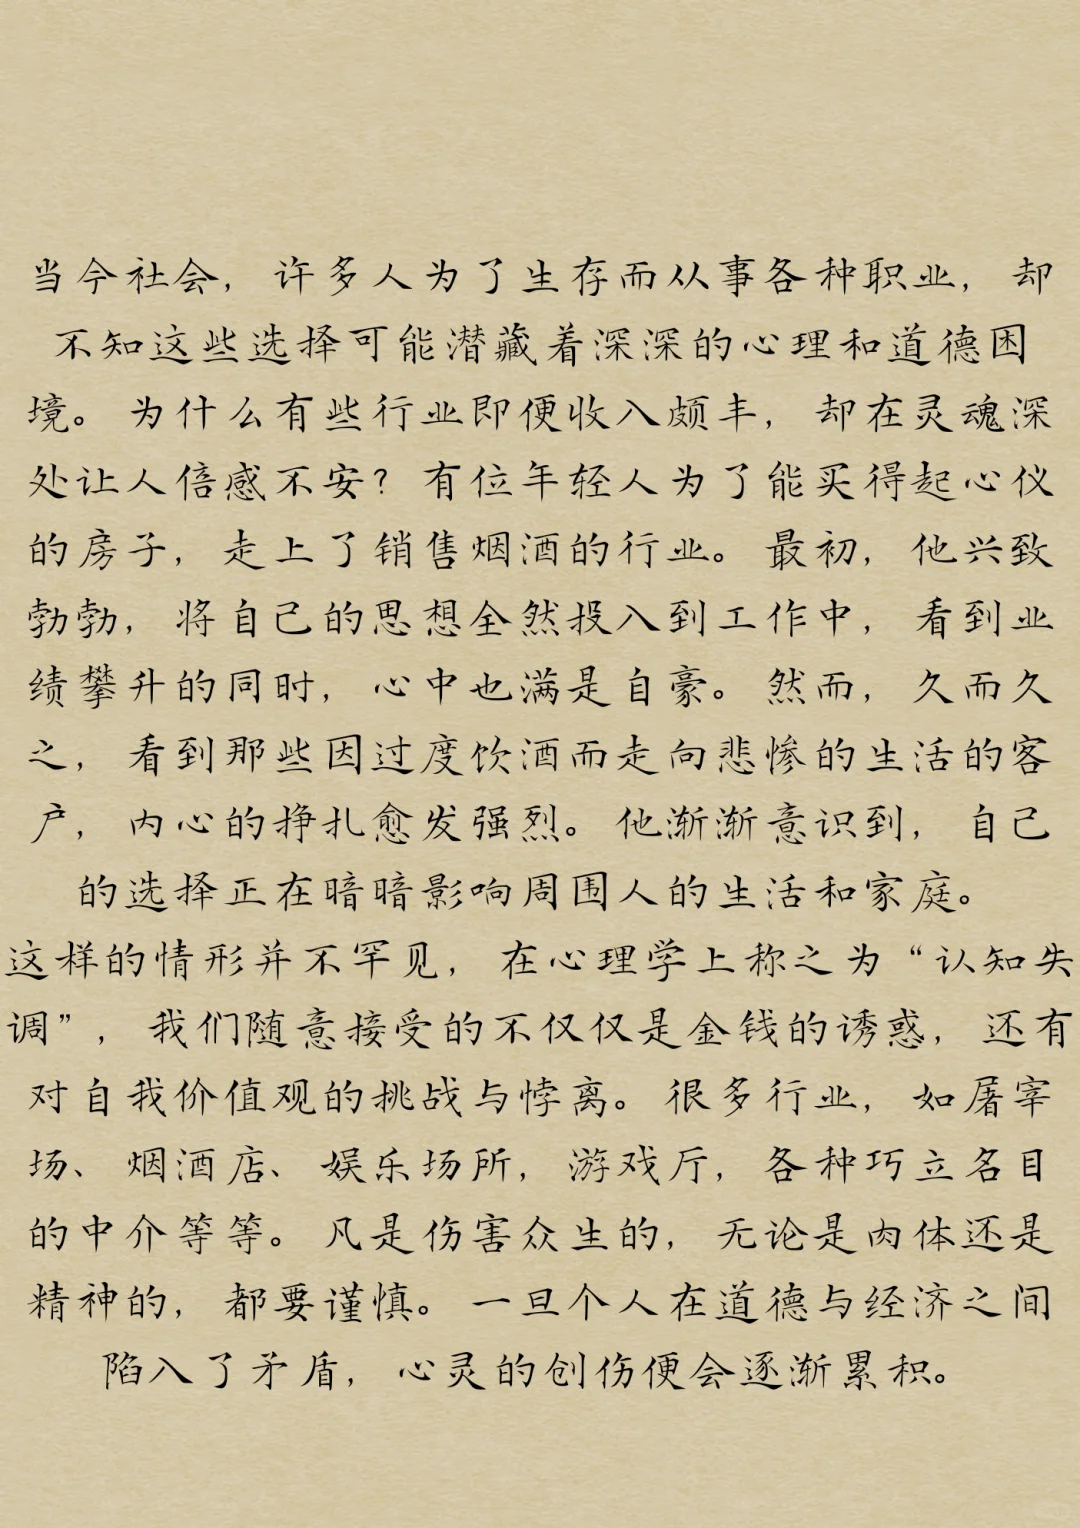 当今社会，许多人为了生存而从事各种职业，却
不知这些选择可能潜藏着深深的心理和道德困
境。为什么有些行业即便收入颇丰，却在灵魂深
处让人倍感不安？有位年轻人为了能买得起心仪
的房子，走上了销售烟酒的行业。最初，他兴致
勃勃，将自己的思想全然投入到工作中，看到业
绩攀升的同时，心中也满是自豪。然而，久而久
之，看到那些因过度饮酒而走向悲惨的生活的客
户，内心的挣扎愈发强烈。他渐渐意识到，自己
的选择正在暗暗影响周围人的生活和家庭。
这样的情形并不罕见，在心理学上称之为“认知失
调”，我们随意接受的不仅仅是金钱的诱惑，还有
对自我价值观的挑战与悖离。很多行业，如屠宰
场、烟酒店、娱乐场所，游戏厅，各种巧立名目
的中介等等。凡是伤害众生的，无论是肉体还是
精神的，都要谨慎。一旦个人在道德与经济之间
陷入了矛盾，心灵的创伤便会逐渐累积。